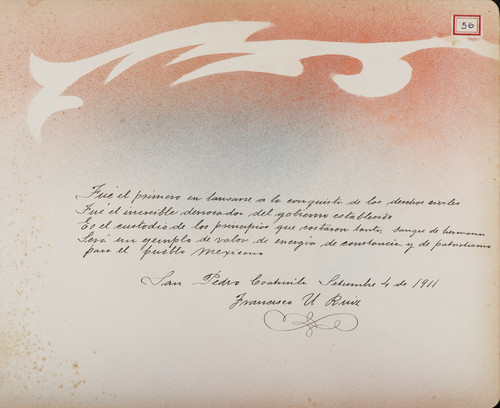 56
Fué el primero en lanzarse a la conquista de los derechos civiles
Fué el increible derrocador del gobierno establecido
Es el custodio de los principios que costaron tanta sangre de hermanos
Será un ejemplo de valor de energia de constancia y de patriotismo
para el pueblo Mexicano
San Pedro Coahuila Setiembre 4 de 1911
Francisco U Ruiz